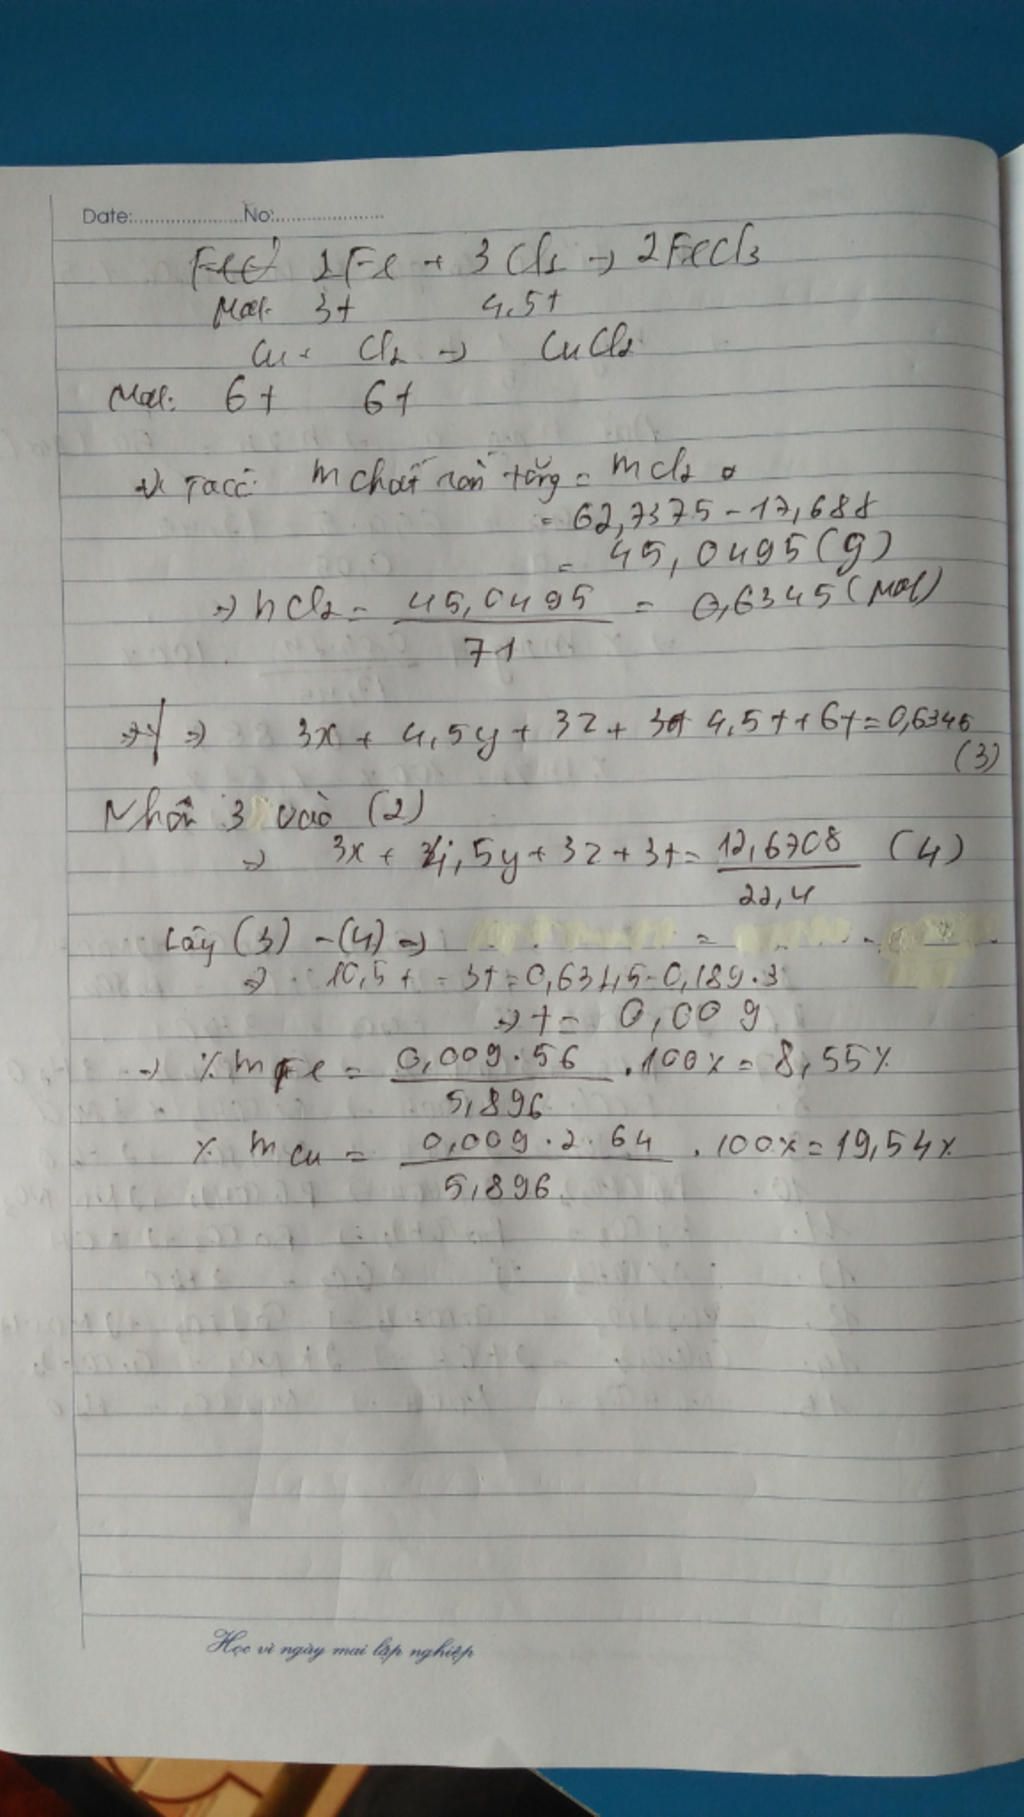 Date:......................No:......................
2Fe + 3Cl2 → 2FeCl3
Mol: 3t 4,5t
Cu + Cl2 → CuCl2
Mol: 6t 6t
Ta có: m chất rắn tăng = mCl2
= 62,7375 - 17,688
= 45,0495 (g)
→ nCl2 = 45,0495 / 71 = 0,6345 (mol)
→ → 3x + 4,5y + 3z + 4,5t + 6t = 0,6345 (3)
Nhân 3 vào (2)
→ 3x + 4,5y + 3z + 3t = 12,6708 / 22,4 (4)
Lấy (3) - (4) →
→ 10,5t - 3t = 0,6345 - 0,189.3
→ t = 0,009
→ % mFe = 0,009.56 / 5,896 .100% = 8,55%
% mCu = 0,009.2.64 / 5,896 .100% = 19,54%
Học vì ngày mai lập nghiệp